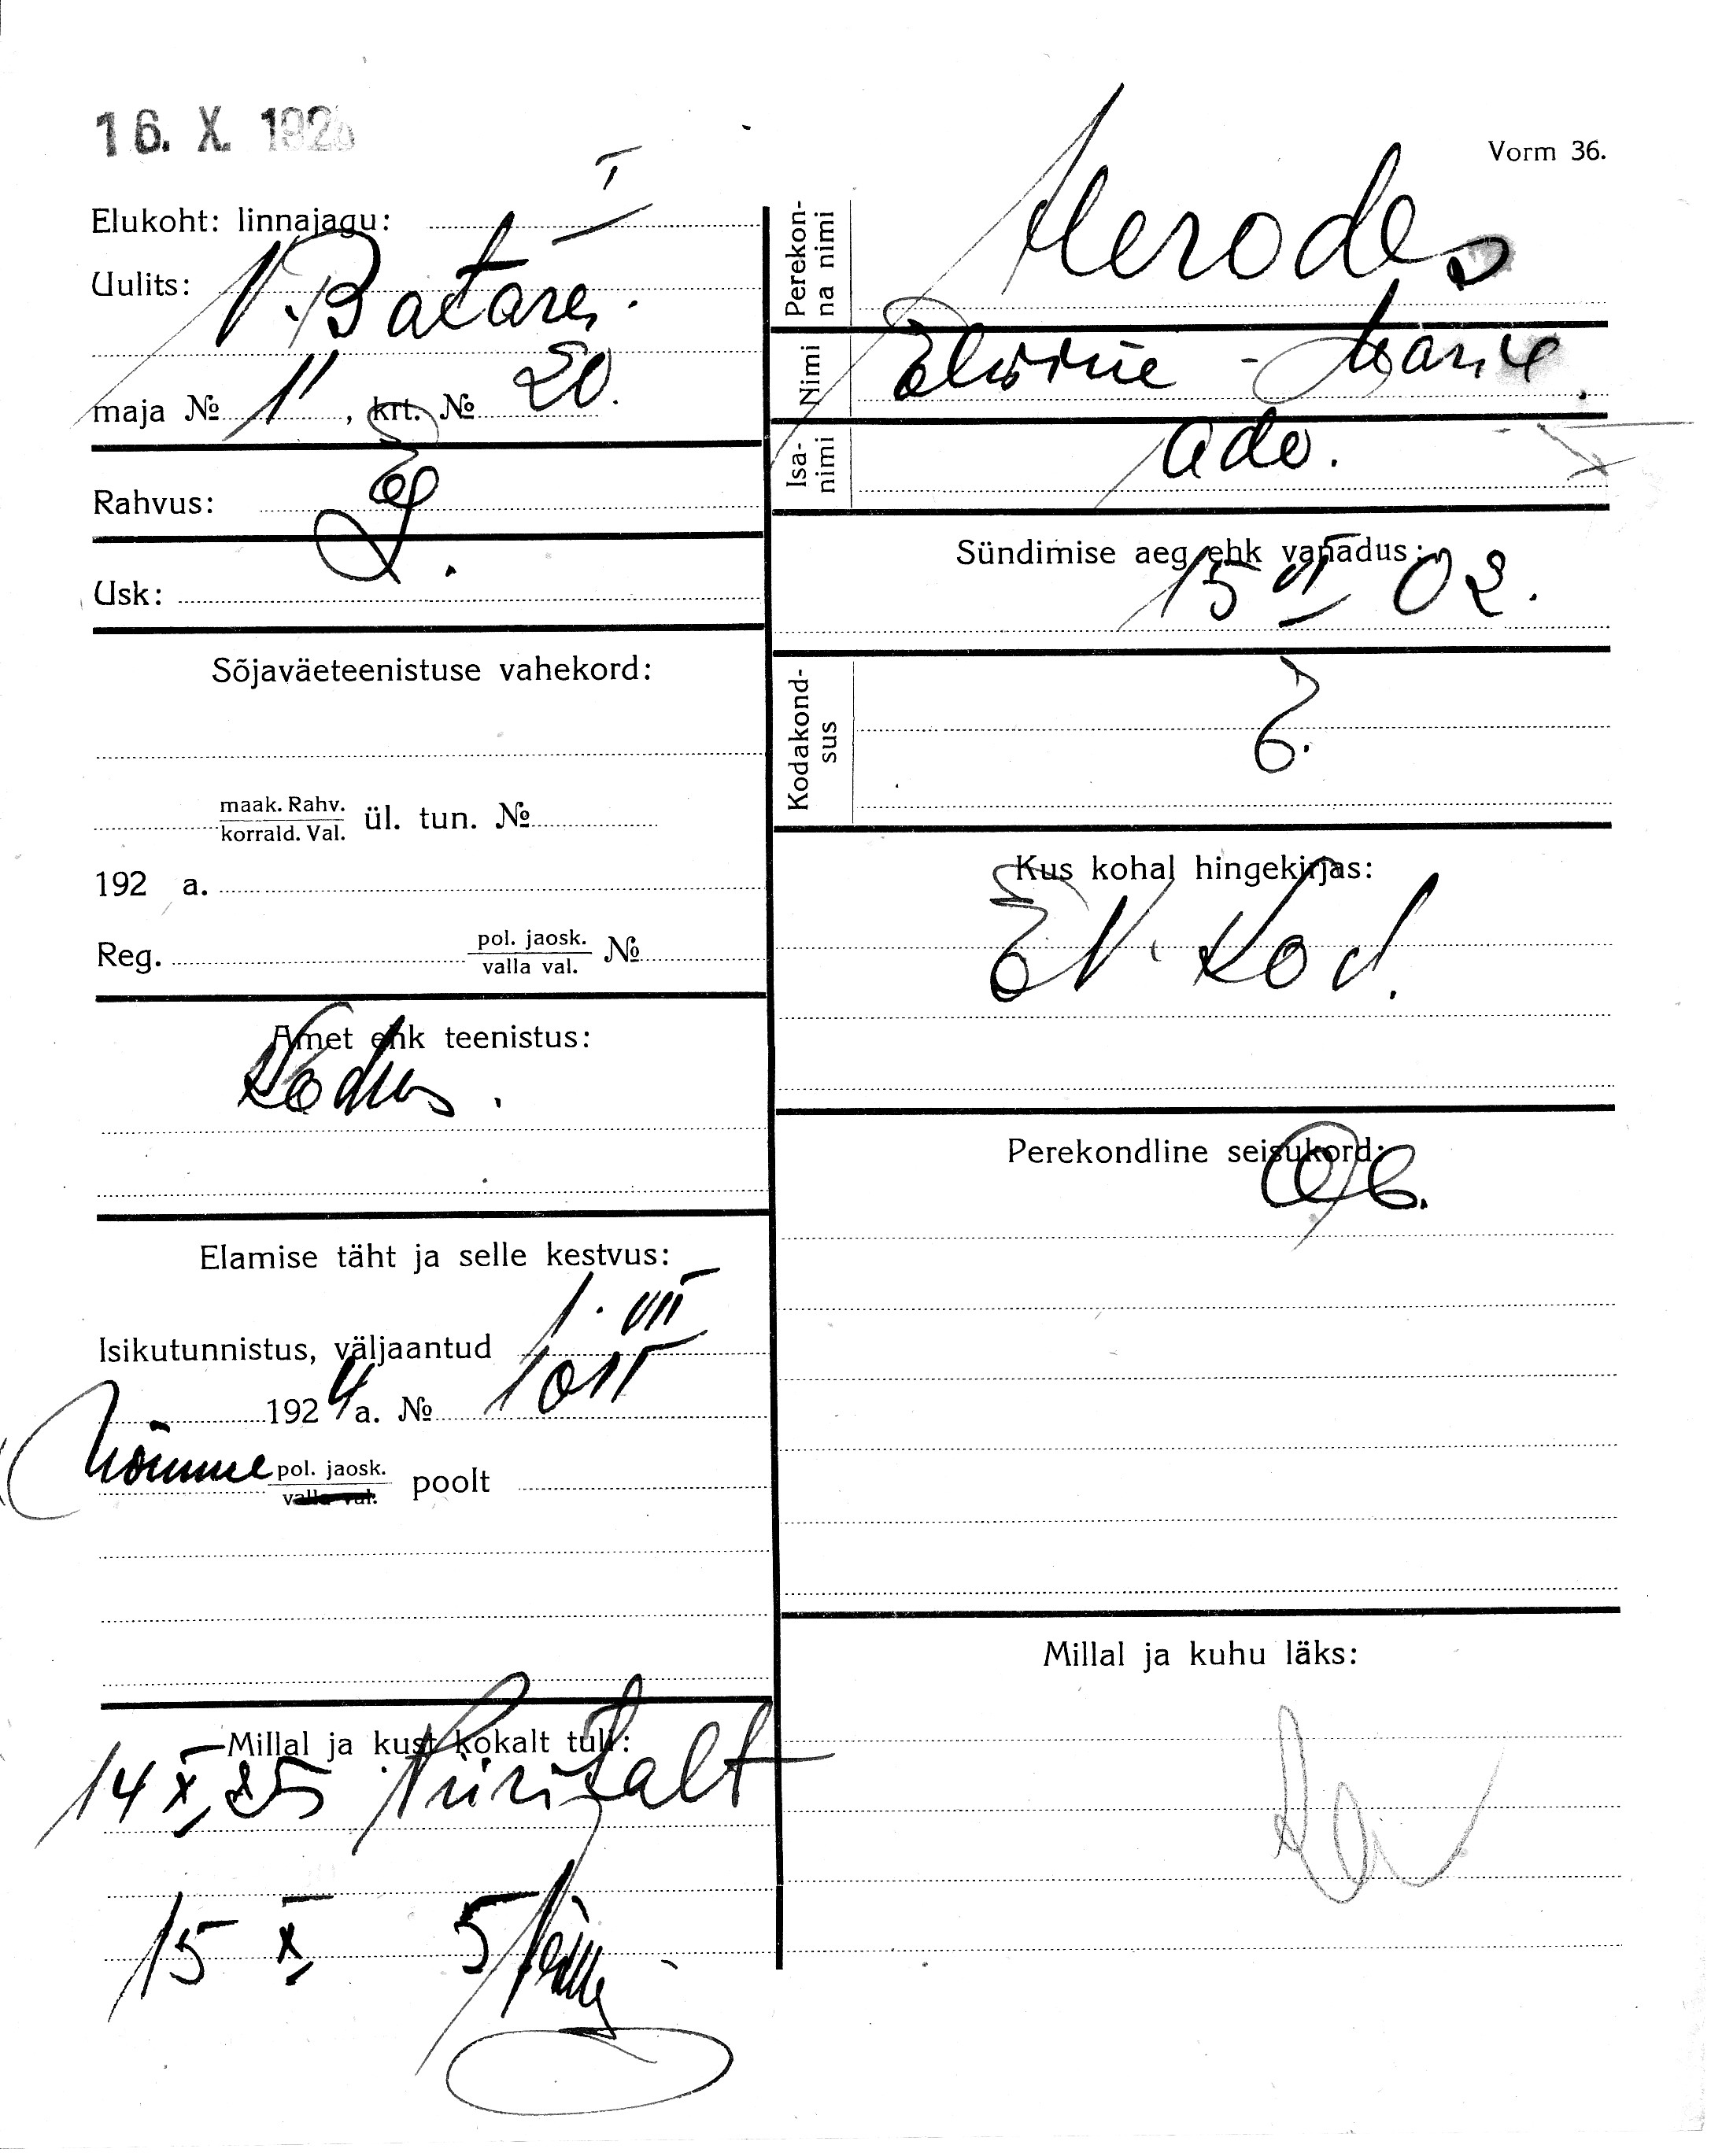 16. X. 1925
Vorm 36.
Elukoht: linnajagu: I
Uulits: V. Batarei.
maja № 1, krt. № 20.
Rahvus: E
Usk: L.
Sõjaväeteenistuse vahekord:
maak. Rahv.
korrald. Val. ül. tun. №
192 a.
Reg. pol. jaosk.
valla val. №
Amet ehk teenistus:
Kodus.
Elamise täht ja selle kestvus:
Isikutunnistus, väljaantud 1. VII
1924 a. № 1011
Nõmme pol. jaosk.
valla val. poolt
Millal ja kust kokalt tuli:
14 X 25 Piiritalt
15 X 5
Perekon-
na nimi Herodes
Nimi Elviine - Marie.
Isa-
nimi Ado.
Sündimise aeg ehk vanadus:
15 VI 02.
Kodakond-
sus E.
Kus kohal hingekirjas:
E V. Kod.
Perekondline seisukord:
Millal ja kuhu läks: